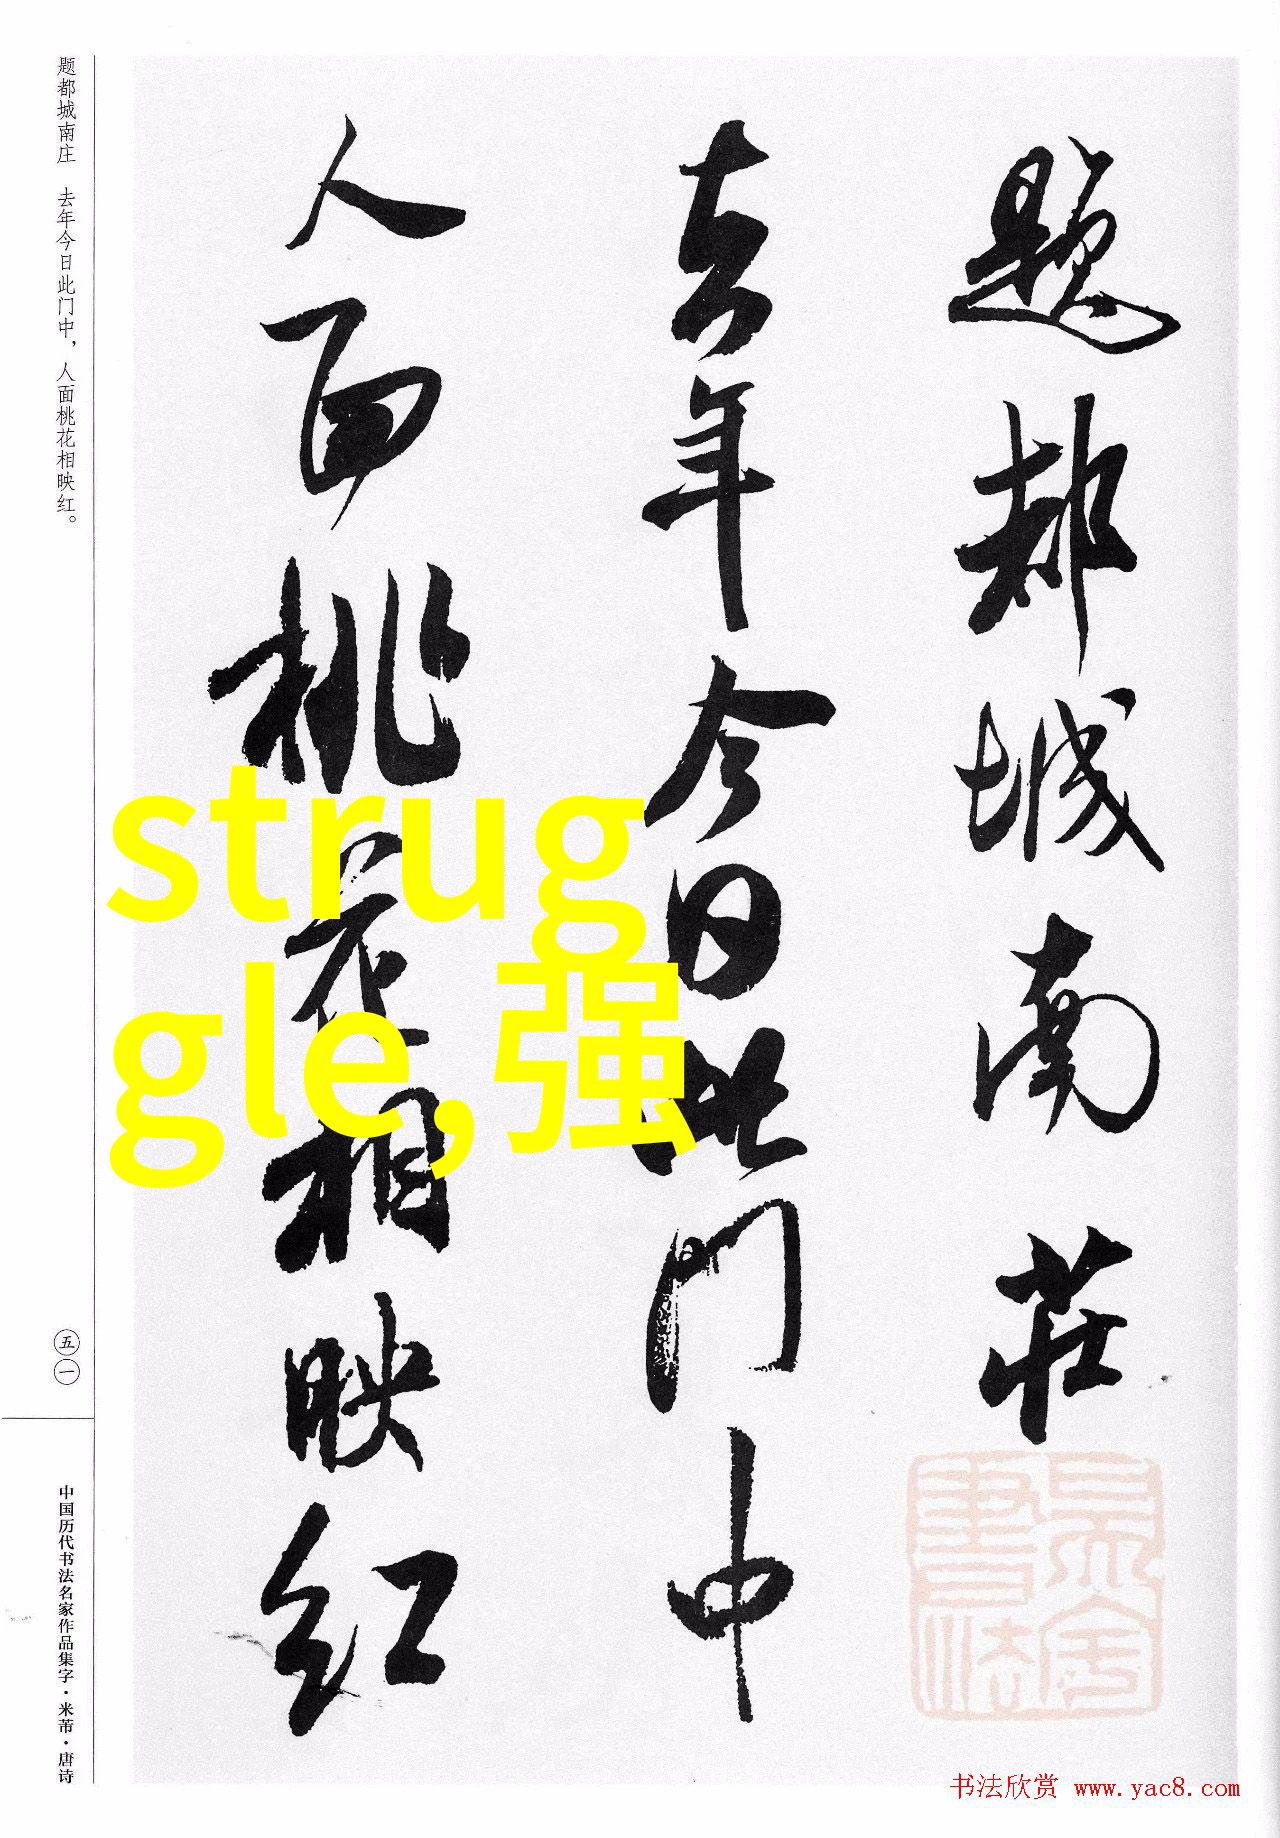 题都城南庄 去年今日此门中，人面桃花相映红。
題都城南莊
去年今日此门中
人面桃花相映红
strug
gle,强
五一
中国历代书法名家作品集字·米芾·唐诗
書法
书法欣赏 www.yac8.com